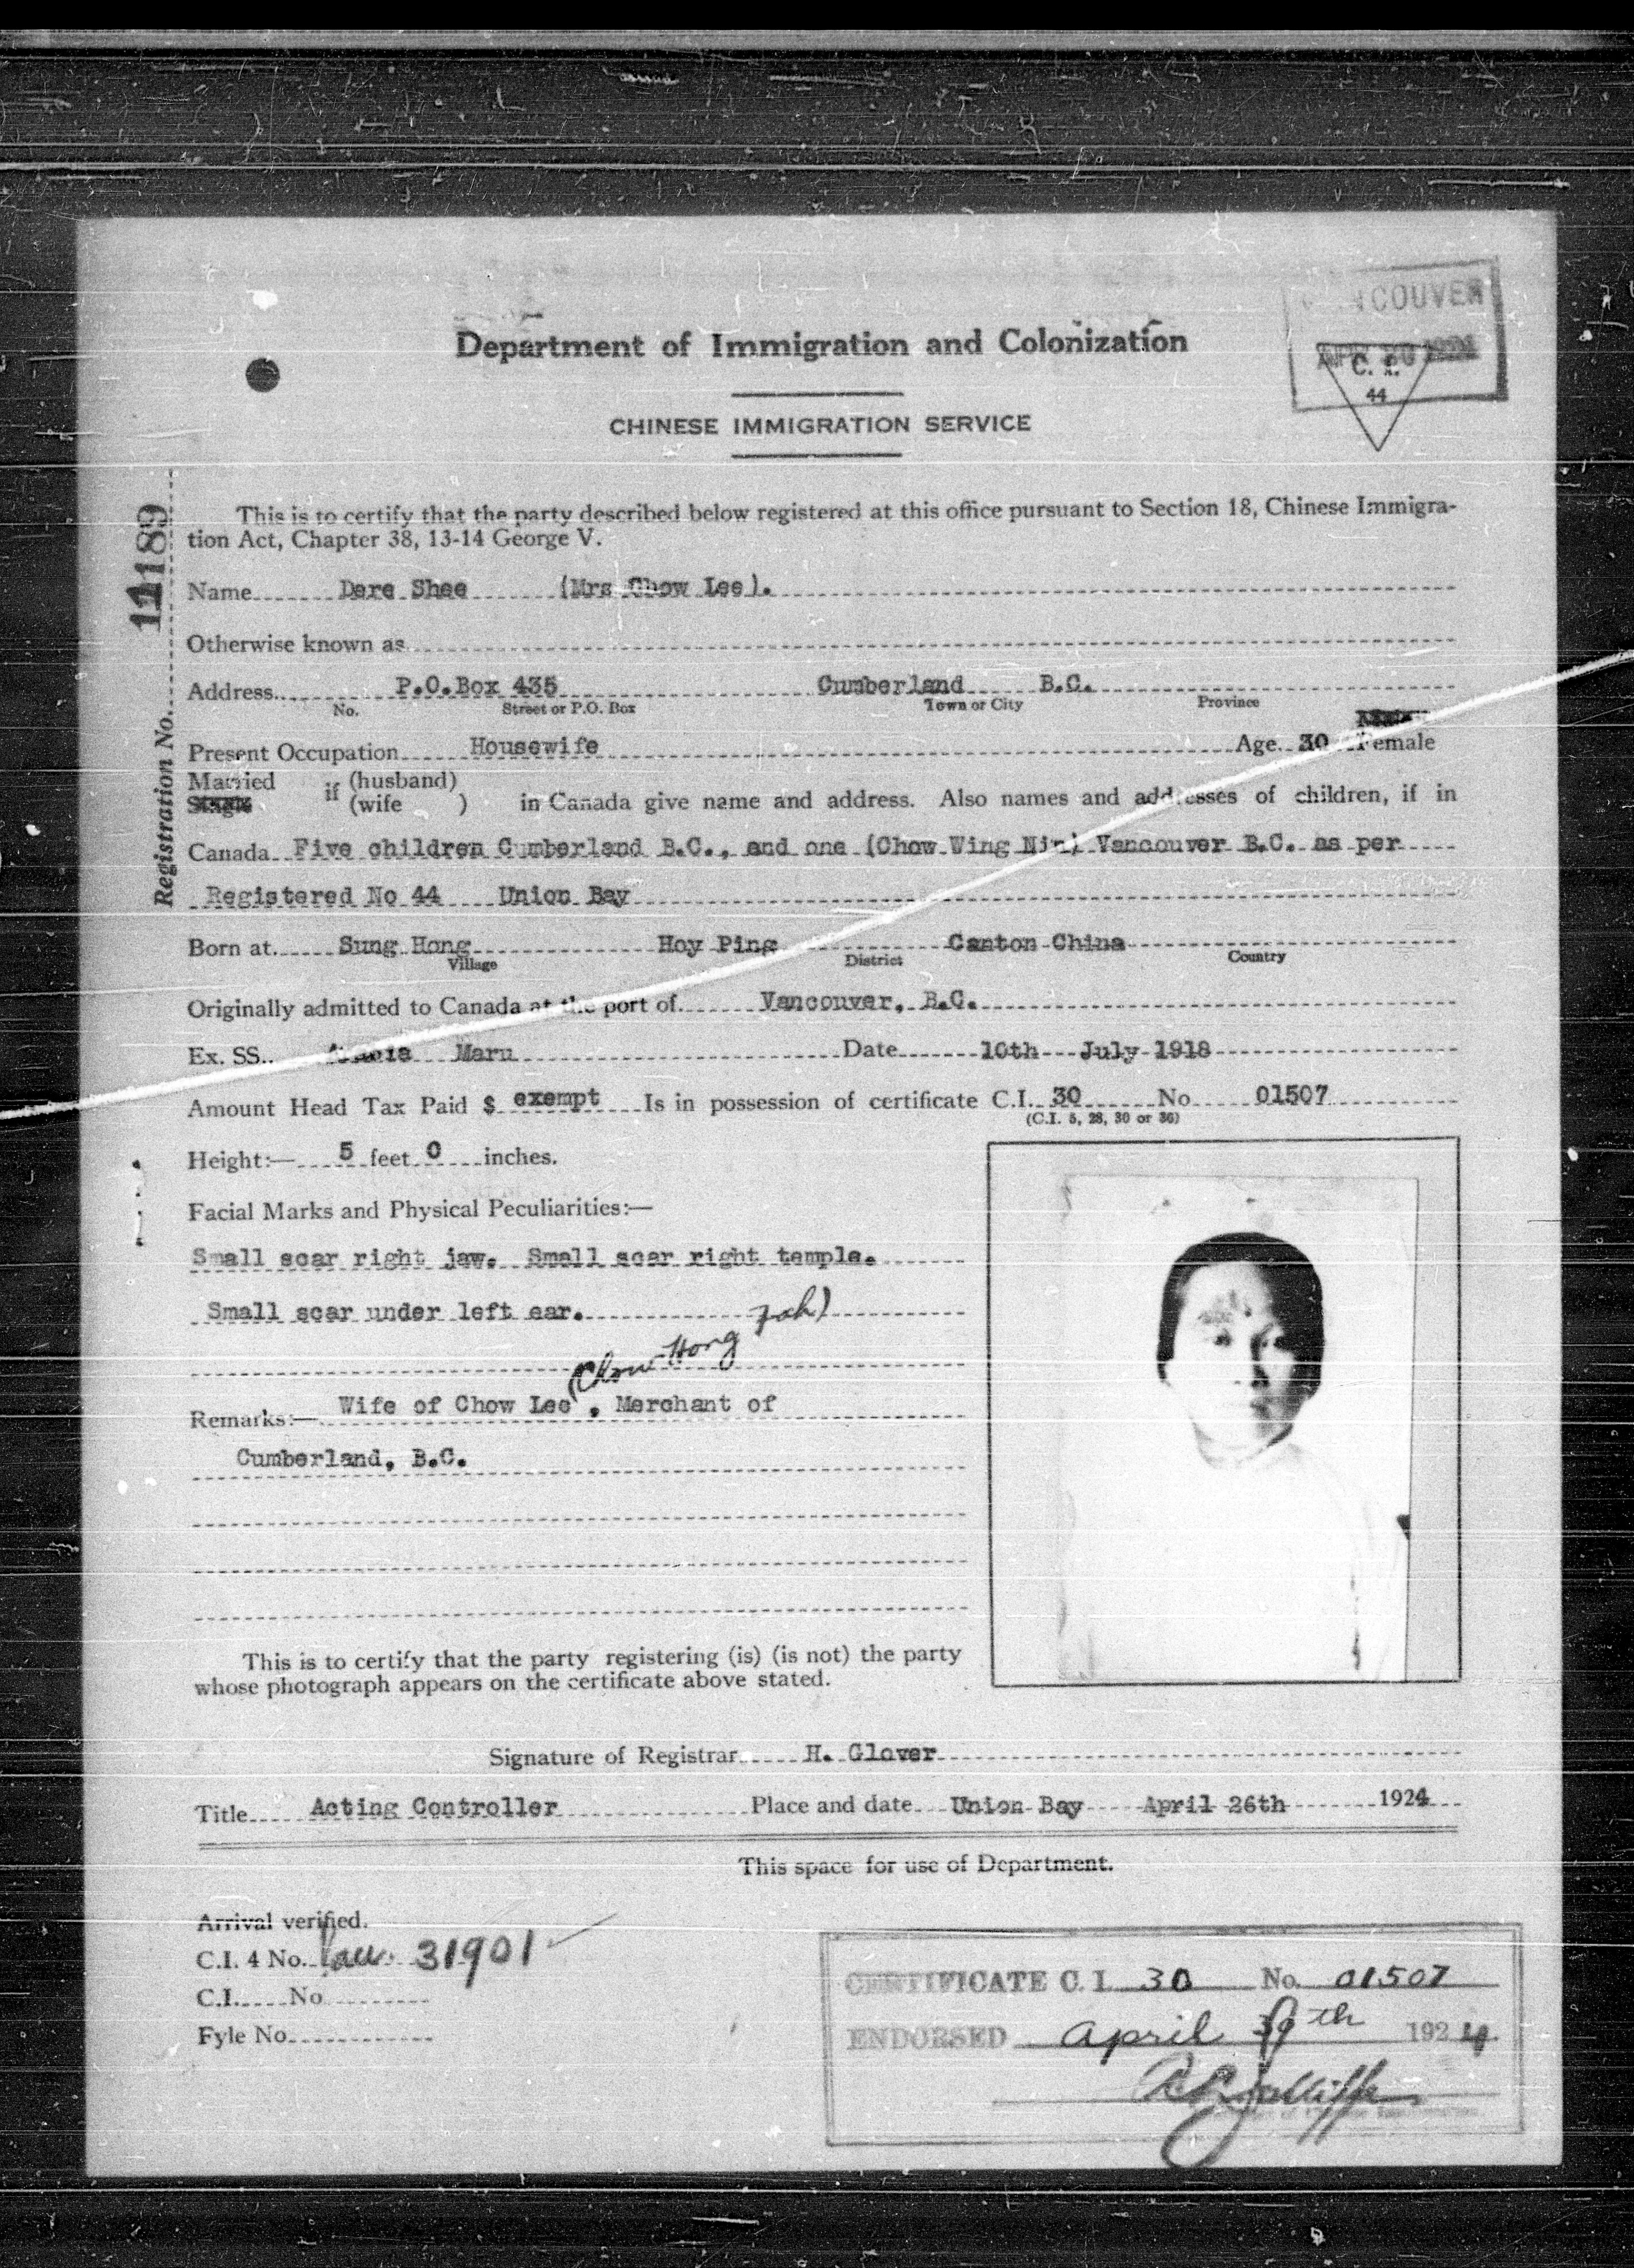 Department of Immigration and Colonization
COUVER
APR 30 1924
C. I.
44
CHINESE IMMIGRATION SERVICE
This is to certify that the party described below registered at this office pursuant to Section 18, Chinese Immigra-
tion Act, Chapter 38, 13-14 George V.
Registration No. 11189
Name Dere Shee (Mrs Chow Lee).
Otherwise known as
Address P.O.Box 435 Cumberland B.C.
No. Street or P.O. Box Town or City Province
Present Occupation Housewife Age 30 Female
Married if (husband)
Single (wife ) in Canada give name and address. Also names and addresses of children, if in
Canada Five children Cumberland B.C., and one (Chow Wing Nin) Vancouver B.C. as per
Registered No 44 Union Bay
Born at Sung Hong Hoy Ping Canton China
Village District Country
Originally admitted to Canada at the port of Vancouver, B.C.
Ex. SS. Maru Date 10th July 1918
Amount Head Tax Paid $ exempt Is in possession of certificate C.I. 30 No 01507
(C.I. 5, 28, 30 or 36)
Height:— 5 feet 0 inches.
Facial Marks and Physical Peculiarities:—
Small scar right jaw. Small scar right temple.
Small scar under left ear.
(Chow Hong
Remarks:— Wife of Chow Lee , Merchant of
Cumberland, B.C.
This is to certify that the party registering (is) (is not) the party
whose photograph appears on the certificate above stated.
Signature of Registrar H. Glover
Title Acting Controller Place and date Union Bay April 26th 1924
This space for use of Department.
Arrival verified.
C.I. 4 No. 31901
C.I. No
Fyle No.
CERTIFICATE C. I. 30 No. 01507
ENDORSED April th 1924.